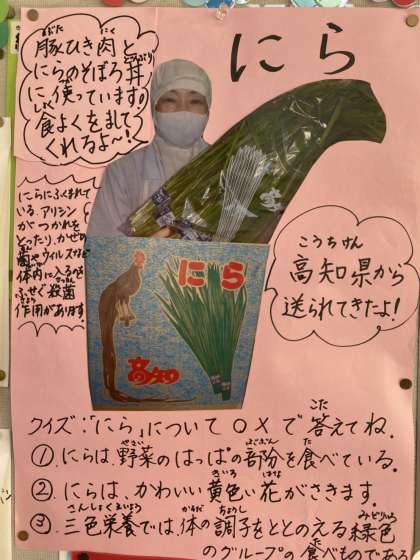 にら
豚ひき肉と
にらのそぼろ丼
に使っています。
食よくをまして
くれるよ〜!
にらにふくまれて
いる、アリシン
がつかれを
とったり、かぜの
菌やウイルスなど
体内に入るのを
ふせぐ殺菌
作用があります
にら
高知
こうちけん
高知県から
送られてきたよ!
クイズ:「にら」について○×で答えてね.
①にらは、野菜のはっぱの部分を食べている。
②にらは、かわいい黄色い花がさきます。
③三色栄養では、体の調子をととのえる緑色
のグループの食べものである